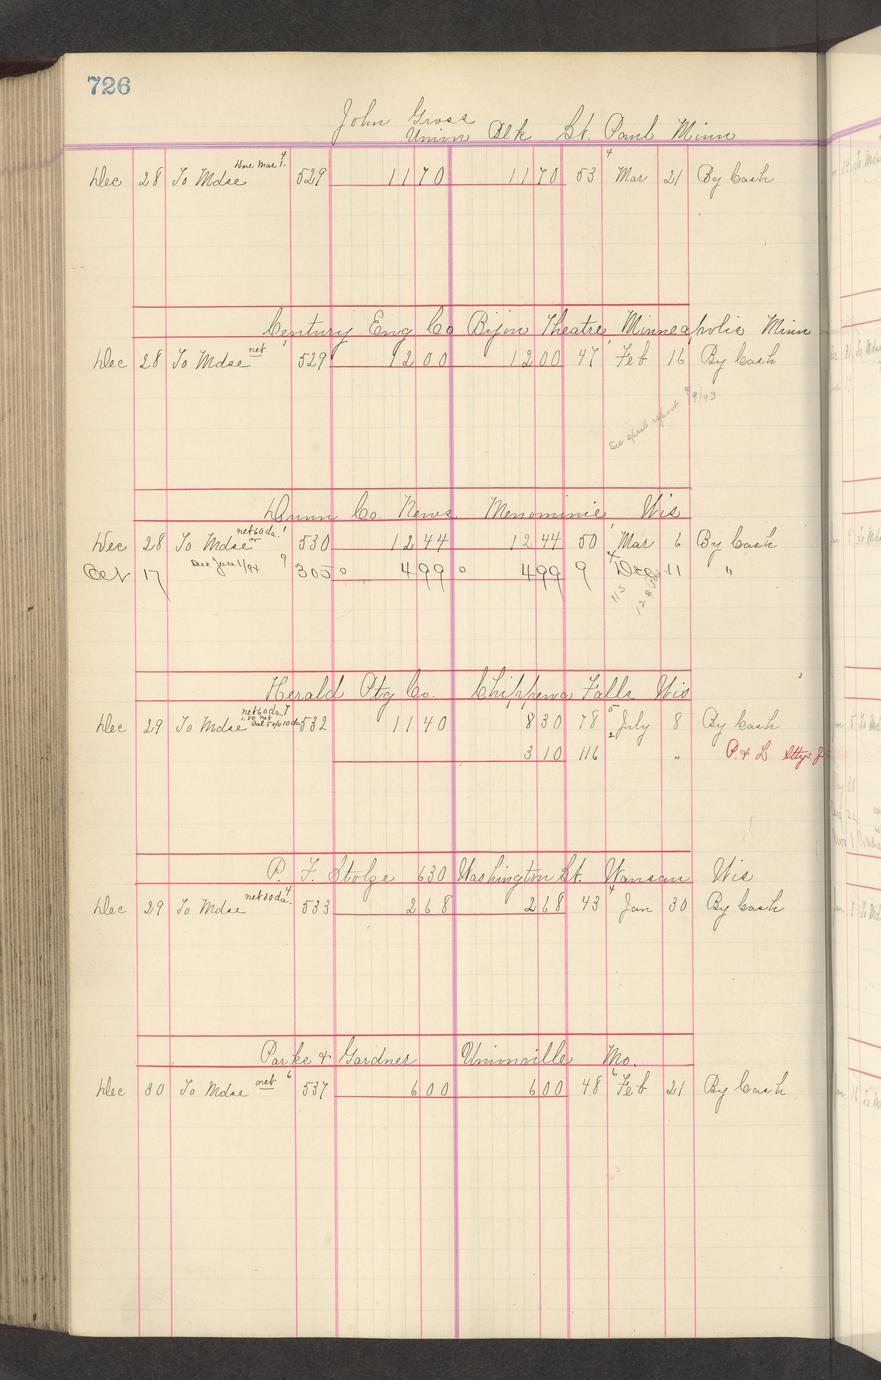 726
John Gross
Union Blk St. Paul Minn
Dec 28 To Mdse Due Mar 1 4 529 11 70 11 70 53 4 Mar 21 By Cash
Century Eng Co Bijou Theatre Minneapolis Minn
Dec 28 To Mdse net 529 12 00 12 00 47 Feb 16 By Cash
See spcl report 9/93
Dunn Co. News Menominie Wis
Dec 28 To Mdse net 60 da. 1 530 12 44 12 44 50 1 Mar 6 By Cash
Oct 17 Due Jan 1/94 9 305 0 4 99 0 4 99 9 Dec 11 "
Herald Ptg Co. Chippewa Falls Wis
Dec 29 To Mdse net 60 da 7 532 11 40 8 30 78 5 July 8 By Cash
3 10 116 2 " P. & L
P. F. Stolze 630 Washington St. Wausau Wis
Dec 29 To Mdse net 30 da. 4 533 2 68 2 68 43 4 Jan 30 By Cash
Parks & Gardner Unionville Mo.
Dec 30 To Mdse net 6 537 6 00 6 00 48 6 Feb 21 By Cash